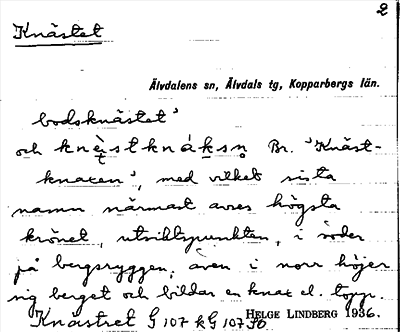 2
Knästet
Älvdalens sn, Älvdals tg, Kopparbergs län.
bodsknästet'
och knèstknáksn̥ Bn. 'Knäst-
knaxen', med vilket sista
namn närmast avses högsta
krönet, utsiktspunkten, i söder
på bergsryggen; även i norr höjer
sig berget och bildar en knax el. topp.
Knästret G 107 kG 107 30
HELGE LINDBERG 1936.